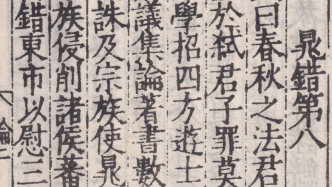 晁錯第八
曰春秋之法君
於弑君子罪莫
學招四方遊士
議集論著書數
誅及宗族使晁
族侵削諸侯蕃
錯東市以慰三
論